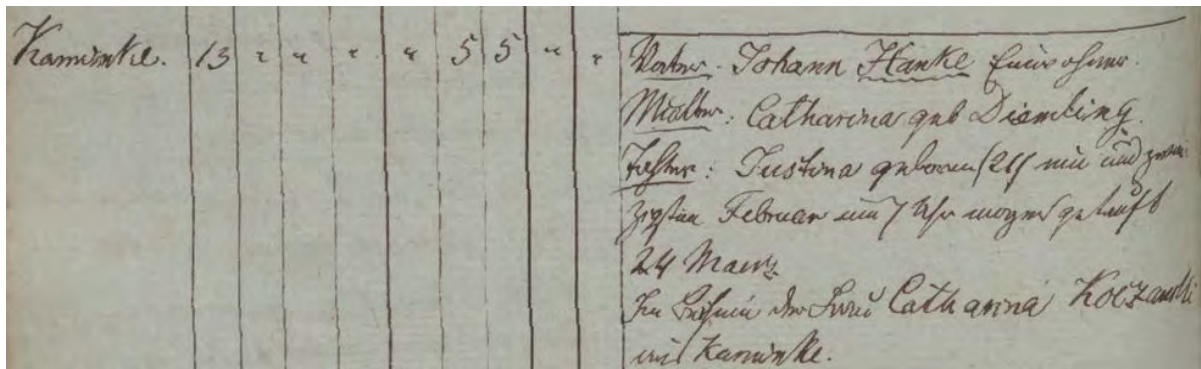 Kaminke. 13 " " " " 5 5 " "
Vater. Johann Hanke Einwohner.
Mutter: Catharina geb Diembing.
Tochter: Justina geboren (21) ein und zwan-
zigsten Februar um 7 Uhr morgens getauft
24 Maerz.
Im Beisein der Frau Catharina
aus Kaminke.